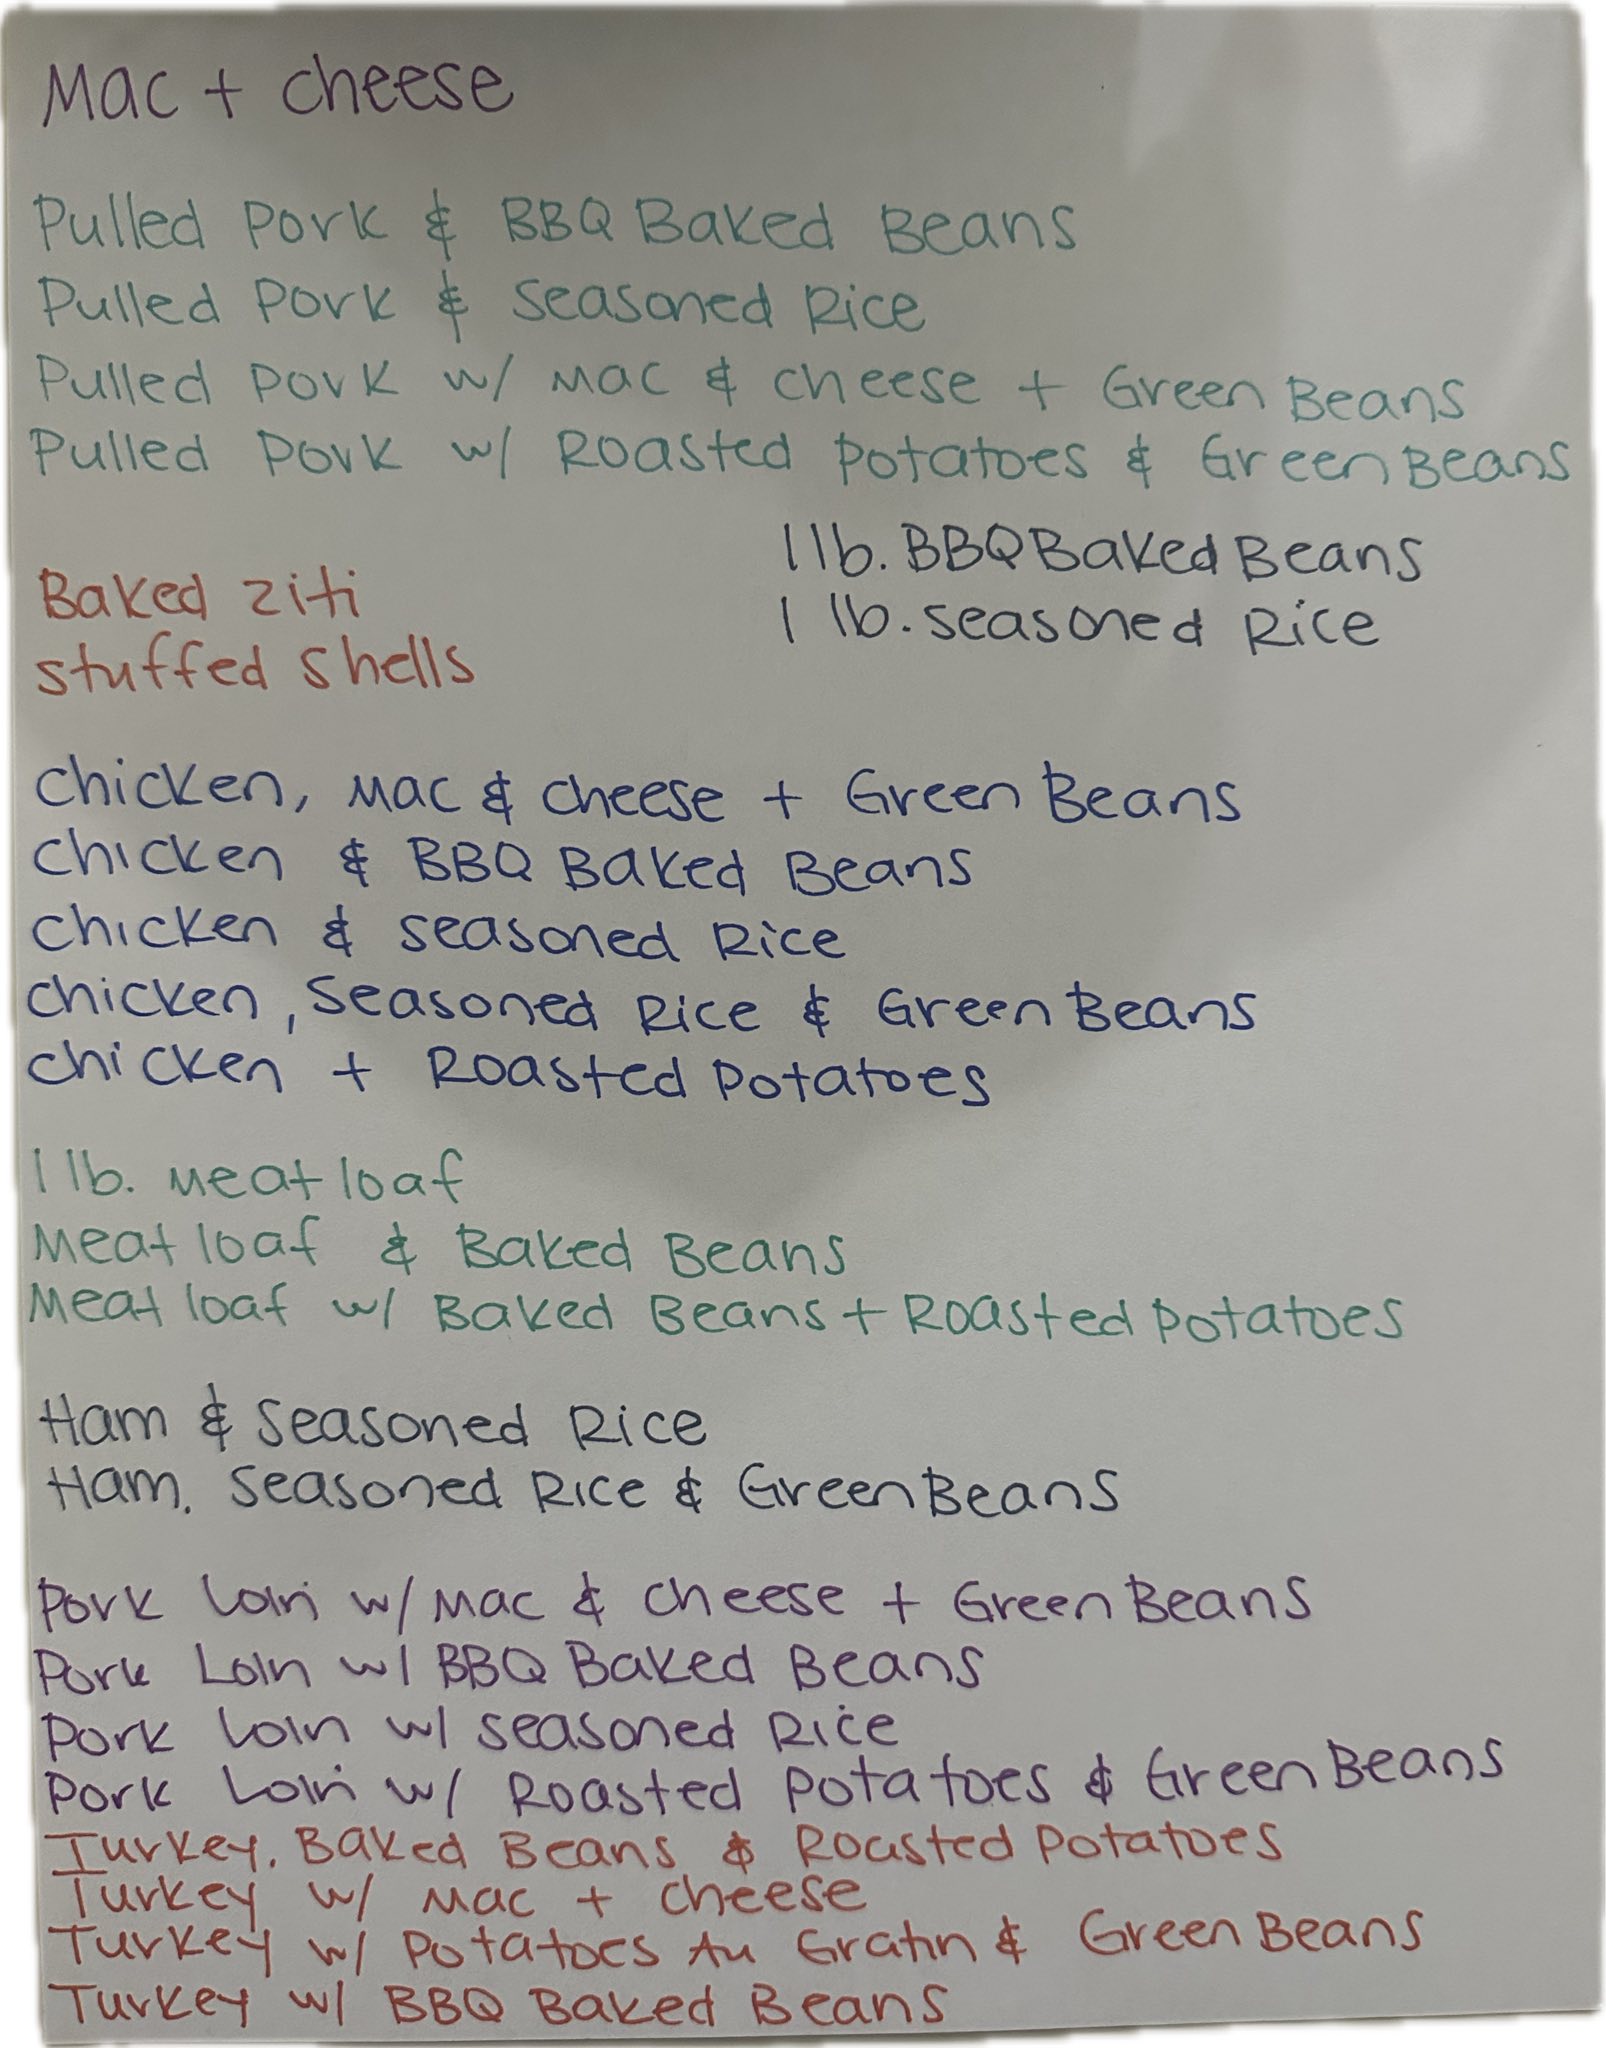 Mac + cheese
Pulled Pork & BBQ Baked Beans
Pulled Pork & Seasoned Rice
Pulled Pork w/ Mac & cheese + Green Beans
Pulled Pork w/ Roasted Potatoes & Green Beans
1 lb. BBQ Baked Beans
1 lb. Seasoned Rice
Baked ziti
stuffed shells
chicken, Mac & cheese + Green Beans
chicken & BBQ Baked Beans
chicken & seasoned Rice
chicken, Seasoned Rice & Green Beans
chicken + Roasted Potatoes
1 lb. Meatloaf
Meatloaf & Baked Beans
Meatloaf w/ Baked Beans + Roasted Potatoes
Ham & Seasoned Rice
Ham, Seasoned Rice & Green Beans
Pork Loin w/ Mac & cheese + Green Beans
Pork Loin w/ BBQ Baked Beans
Pork Loin w/ seasoned Rice
Pork Loin w/ Roasted Potatoes & Green Beans
Turkey, Baked Beans & Roasted Potatoes
Turkey w/ Mac + cheese
Turkey w/ Potatoes Au Gratin & Green Beans
Turkey w/ BBQ Baked Beans